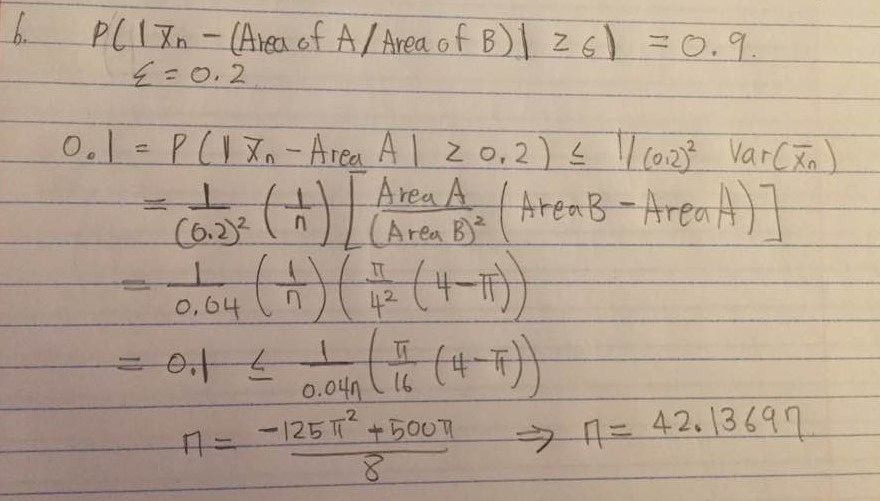 6. P(|X̄n - (Area of A / Area of B)| ≥ 6) = 0.9.
ε = 0.2
0.1 = P(|X̄n - Area A| ≥ 0.2) ≤ 1/(0.2)² Var(X̄n)
= 1/(0.2)² (1/n) [Area A/(Area B)² (Area B - Area A)]
= 1/0.04 (1/n) (π/4² (4-π))
= 0.1 ≤ 1/0.04n (π/16 (4-π))
n = (-125π² + 500π)/8 ⇒ n = 42.13697